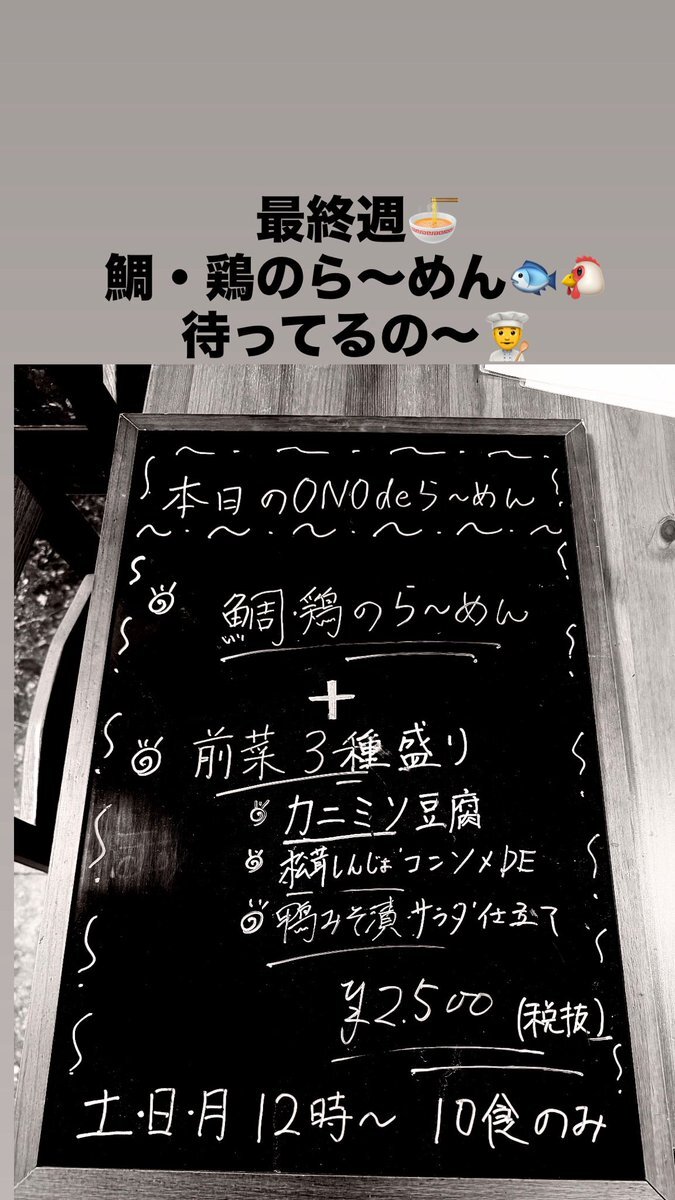 最終週🍜
鯛・鶏のら〜めん🐟🐔
待ってるの〜👨‍🍳
本日のONOdeら〜めん
鯛・鶏のら〜めん
+
前菜3種盛り
カニミソ豆腐
松茸しんじょコンソメDE
鴨みそ漬サラダ仕立て
¥2.500 (税抜)
土・日・月 12時〜 10食のみ